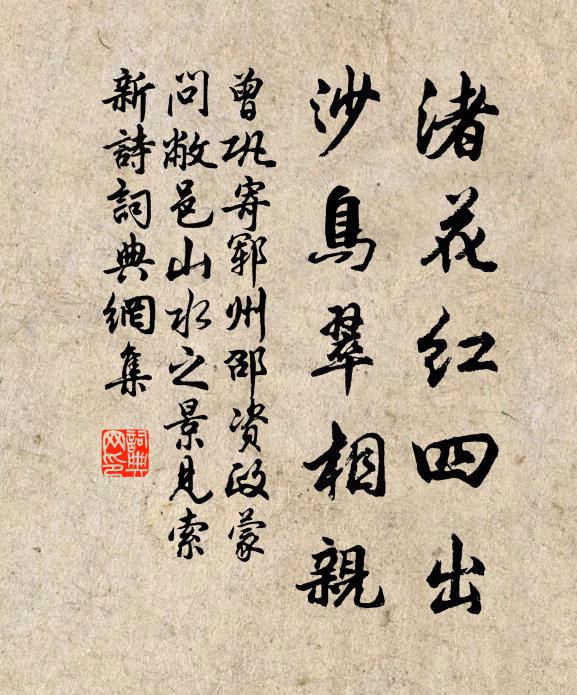 渚花红四出
沙鳥翠相親
曾巩寄鄆州邵资政蒙
问敝邑山水之景見索
新詩詞典網集
詞典
网印